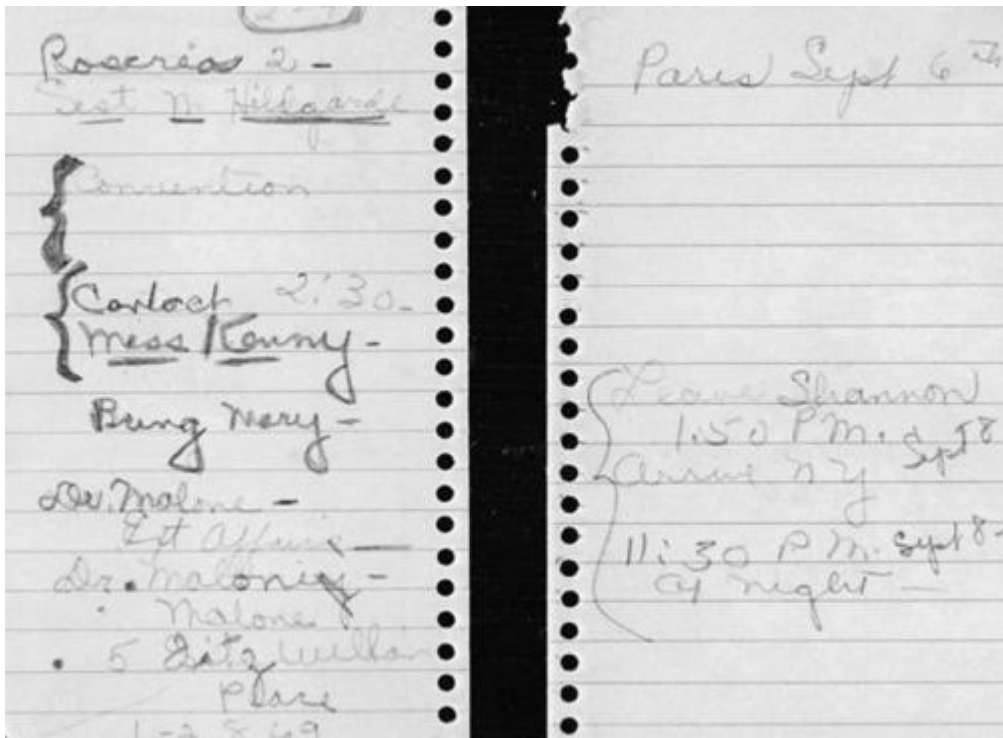 Rosaries 2 -
Sist M Hildgarde
Convention
Contact 2:30 -
Miss Kenny -
Bring Mary -
Dr. Malone -
Ext Affairs
Dr. Maloney -
Malone
5 Fitz William
Place
Paris Sept 6 th
Leave Shannon
1:50 P M. Sept 8
Arrive NY
11:30 P M. Sept 8 -
at night -